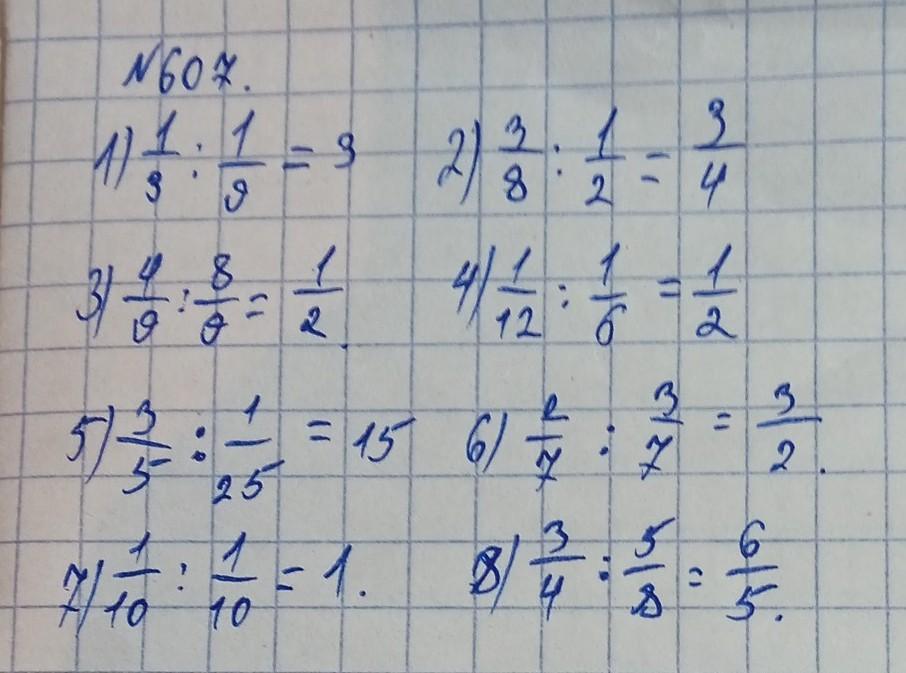 N607.
1) 1/3 : 1/9 = 3 2) 3/8 : 1/2 = 3/4
3) 4/9 : 8/9 = 1/2. 4) 1/12 : 1/6 = 1/2
5) 3/5 : 1/25 = 15 6) 2/7 : 3/7 = 3/2.
7) 1/10 : 1/10 = 1. 8) 3/4 : 5/8 = 6/5.